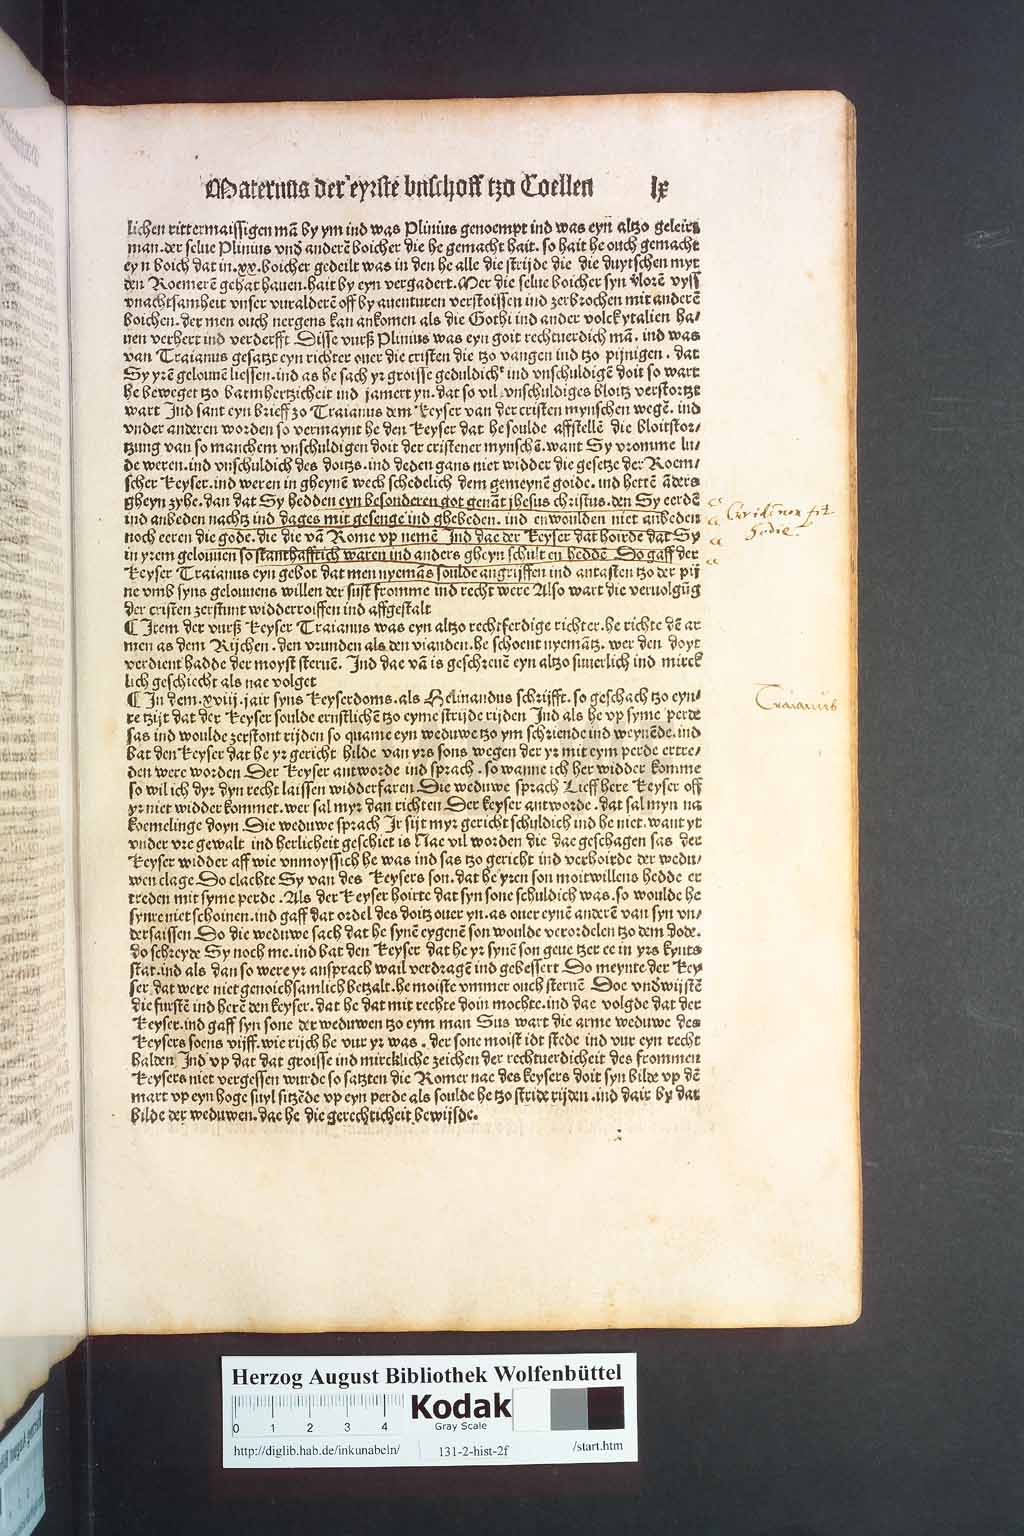 Maternus der eyrste buschoff tzo Coellen lx
lichen rittermaissigen mā by ym ind was Plinius genoempt ind was eyn altzo geleirt
man. der selue Plinius vnd anderē boicher die he gemacht hait. so hait he ouch gemacht
eyn boich dat in .xx. boicher gedeilt was in den he alle die strijde die die duytschen myt
den Roemerē gehat hauen. hait by eyn vergadert. Mer die selue boicher syn vlorē vyss
vnachtsamheit vnser vuralderē off by auenturen verstoissen ind zerbrochen mit anderē
boichen. der men ouch nergens kan ankomen als die Gothi ind ander volck ytalien ha/
uen verhert ind verderfft Disse vurß Plinius was eyn goit rechtuerdich mā. ind was
van Traianus gesatzt eyn richter ouer die cristen die tzo vangen ind tzo pijnigen. dat
Sy yrē gelouuē liessen. ind as he sach yr groisse geduldichᵗ ind vnschuldigē doit so wart
he beweget tzo barmhertzicheit ind jamert yn. dat so vil vnschuldiges bloitz verstortzt
wart Ind sant eyn brieff zo Traianus dem Keyser van der cristen mynschen wegē. ind
vnder anderen worden so vermaynt he den Keyser dat he soulde affstellē die bloitstor/
tzung van so manchem vnschuldigen doit der cristener mynschē. want Sy vromme lu/
de weren. ind vnschuldich des doitzs. ind deden gans niet widder die gesetze der Roem/
scher Keyser. ind weren in gheynē wech schedelich dem gemeynē goide. ind hettē āders
gheyn zyhe. dan dat Sy hedden eyn besonderen got genāt jhesus christus. den Sy eerdē
ind anbeden nachtz ind dages mit gesenge ind ghebeden. ind enwoulden niet anbeden
noch eeren die gode. die die vā Rome vp nemē Ind dae der Keyser dat hoirde dat Sy
in yrem gelouuen so stanthafftich waren ind anders gheyn schult en heddē So gaff der
Keyser Traianus eyn gebot dat men nyemās soulde angrijffen ind antasten tzo der pij
ne vmb syns gelouuens willen der sust fromme ind recht were Also wart die veruolgūg
der cristen zerstunt widderroiffen ind affgestalt
¶ Item der vurß Keyser Traianus was eyn altzo rechtferdige richter. he richte dē ar
men as dem Rijchen. den vrunden als den vianden. he schoent nyemātz. wer den doyt
verdient hadde der moyst steruē. Ind dae vā is geschreuē eyn altzo suuerlich ind mirck
lich geschiecht als nae volget
¶ In dem .xviij. jair syns Keyserdoms. als Helinandus schrijfft. so geschach tzo eyn/
re tzijt dat der Keyser soulde ernstlichē tzo eyme strijde rijden Ind als he vp syme perde
sas ind woulde zerstont rijden so quame eyn weduwe tzo ym schriende ind weynēde. ind
bat den Keyser dat he yr gericht hilde van yrs sons wegen der yr mit eym perde ertre/
den were worden Der Keyser antworde ind sprach. so wanne ich her widder komme
so wil ich dyr dyn recht laissen widderfaren Die weduwe sprach Lieff here Keyser off
yr niet widder kommet. wer sal myr dan richten Der keyser antworde. dat sal myn na
koemelinge doyn. Die weduwe sprach Ir sijt myr gericht schuldich ind he niet. want yt
vnder vre gewalt ind herlicheit geschiet is Nae vil worden die dae geschagen sas der
Keyser widder aff wie vnmoyssich he was ind sas tzo gericht ind verhoirde der wedu/
wen clage Do clachte Sy van des Keysers son. dat he yren son moitwillens hedde er
treden mit syme perde. Als der Keyser hoirte dat syn sone schuldich was. so woulde he
synre niet schoinen. ind gaff dat ordel des doitz ouer yn. as ouer eynē anderē van syn vn/
dersaissen Do die weduwe sach dat he synē eygenē son woulde verordelen tzo dem dode.
do schreyde Sy noch me. ind bat den Keyser dat he yr synē son geue tzer ee in yrs kynts
stat. ind als dan so were yr ansprach wail verdragē ind gebessert Do meynte der Key
ser dat were niet genoichsamlich betzalt. he moiste vmmer ouch steruē Doe vndwijstē
die furstē ind herē den keyser. dat he dat mit rechte doin mochte. ind dae volgde dat der
Keyser. ind gaff syn sone der weduwen tzo eym man Sus wart die arme weduwe des
Keysers soens vijff. wie rijch he vur yr was. der sone moist idt stede ind vur eyn recht
halden Ind vp dat dat groisse ind mirckliche zeichen der rechtuerdicheit des frommen
Keysers niet vergessen wurde so satzten die Romer nae des keysers doit syn bilde vp dē
mart vp eyn hoge suyl sitzēde vp eyn perde als soulde he tzo stride rijden. ind dair by dat
bilde der weduwen. dae he die gerechticheit bewijsde.
hodie.
Traianus
Herzog August Bibliothek Wolfenbüttel
0 1 2 3 4 Kodak
Gray Scale
http://diglib.hab.de/inkunabeln/ 131-2-hist-2f /start.htm